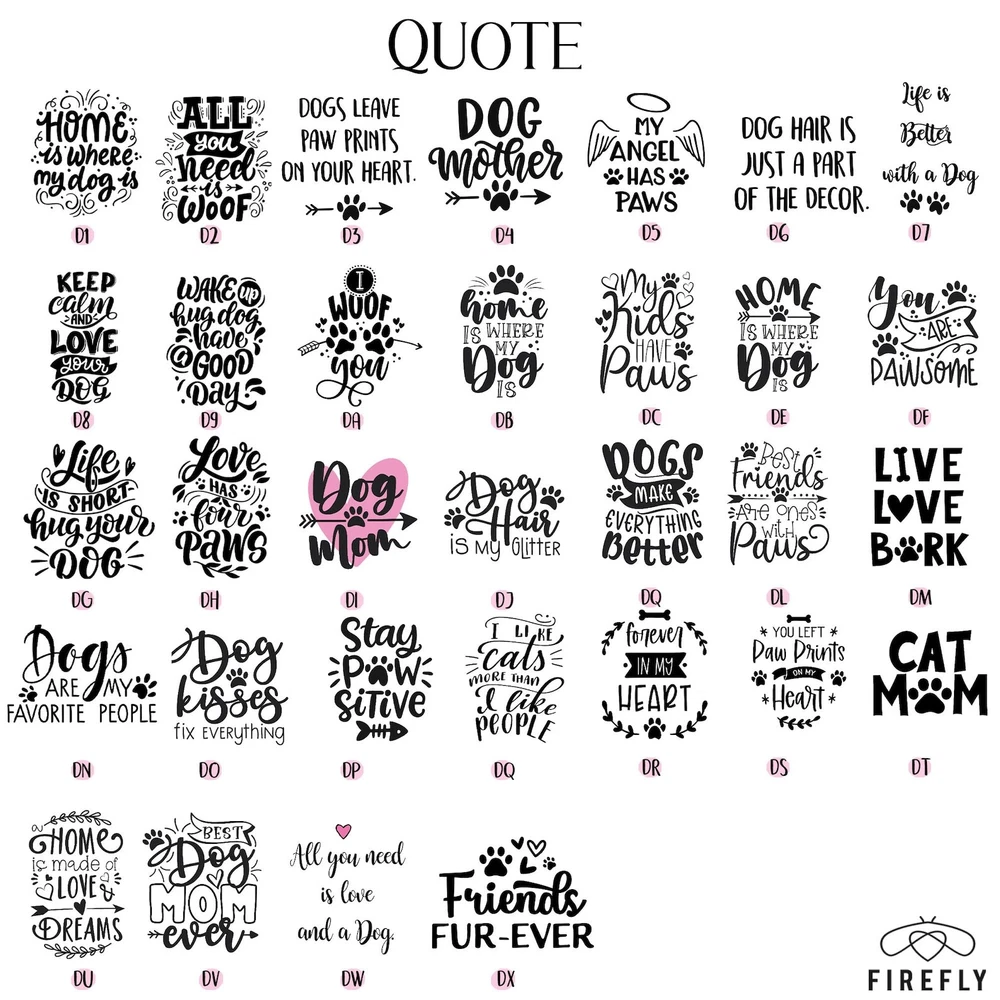 QUOTE
HOME
is where
my dog is
D1
ALL
you
need
is
WOOF
D2
DOGS LEAVE
PAW PRINTS
ON YOUR HEART.
D3
DOG
mother
D4
MY
ANGEL
HAS
PAWS
D5
DOG HAIR IS
JUST A PART
OF THE DECOR.
D6
Life is
Better
with a Dog
D7
KEEP
calm
AND
LOVE
your
DOG
D8
WAKE up
hug dog
have
a GOOD
Day.
D9
I
WOOF
you
DA
home
IS WHERE
MY
Dog
IS
DB
My
Kids
HAVE
Paws
DC
HOME
IS WHERE
MY
Dog
IS
DE
You
ARE
PAWSOME
DF
Life
IS SHORT
hug your
DOG
DG
Love
HAS
four
PAWS
DH
Dog
Mom
DI
Dog
Hair
IS MY GLITTER
DJ
DOGS
MAKE
EVERYTHING
Better
DQ
Best
Friends
Are ones
WITH
Paws
DL
LIVE
LOVE
BARK
DM
Dogs
ARE MY
FAVORITE PEOPLE
DN
Dog
kisses
fix EVERYTHING
DO
Stay
PAW
SiTiVE
DP
I LIKE
cats
MORE THAN
I like
PEOPLE
DQ
forever
IN MY
HEART
DR
YOU LEFT
Paw Prints
ON MY
Heart
DS
CAT
MOM
DT
a
HOME
is made of
LOVE &
DREAMS
DU
BEST
Dog
MOM
ever
DV
All you need
is love
and a Dog.
DW
Friends
FUR-EVER
DX
FIREFLY